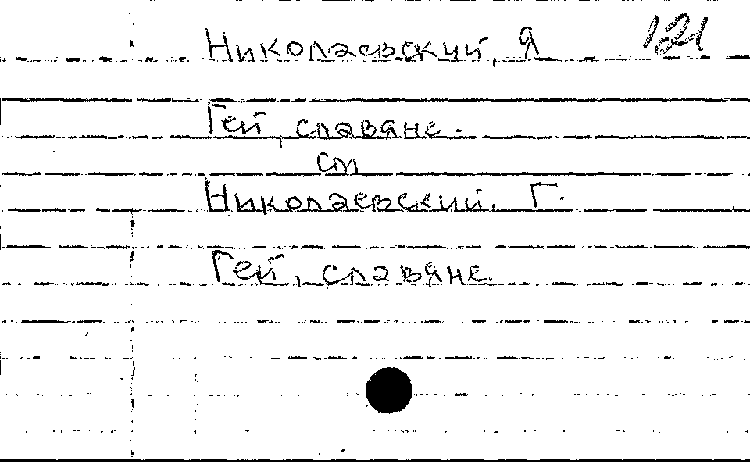 Николаевский, Я 121
Гей, славяне.
см
Николаевский. Г.
Гей, славяне.